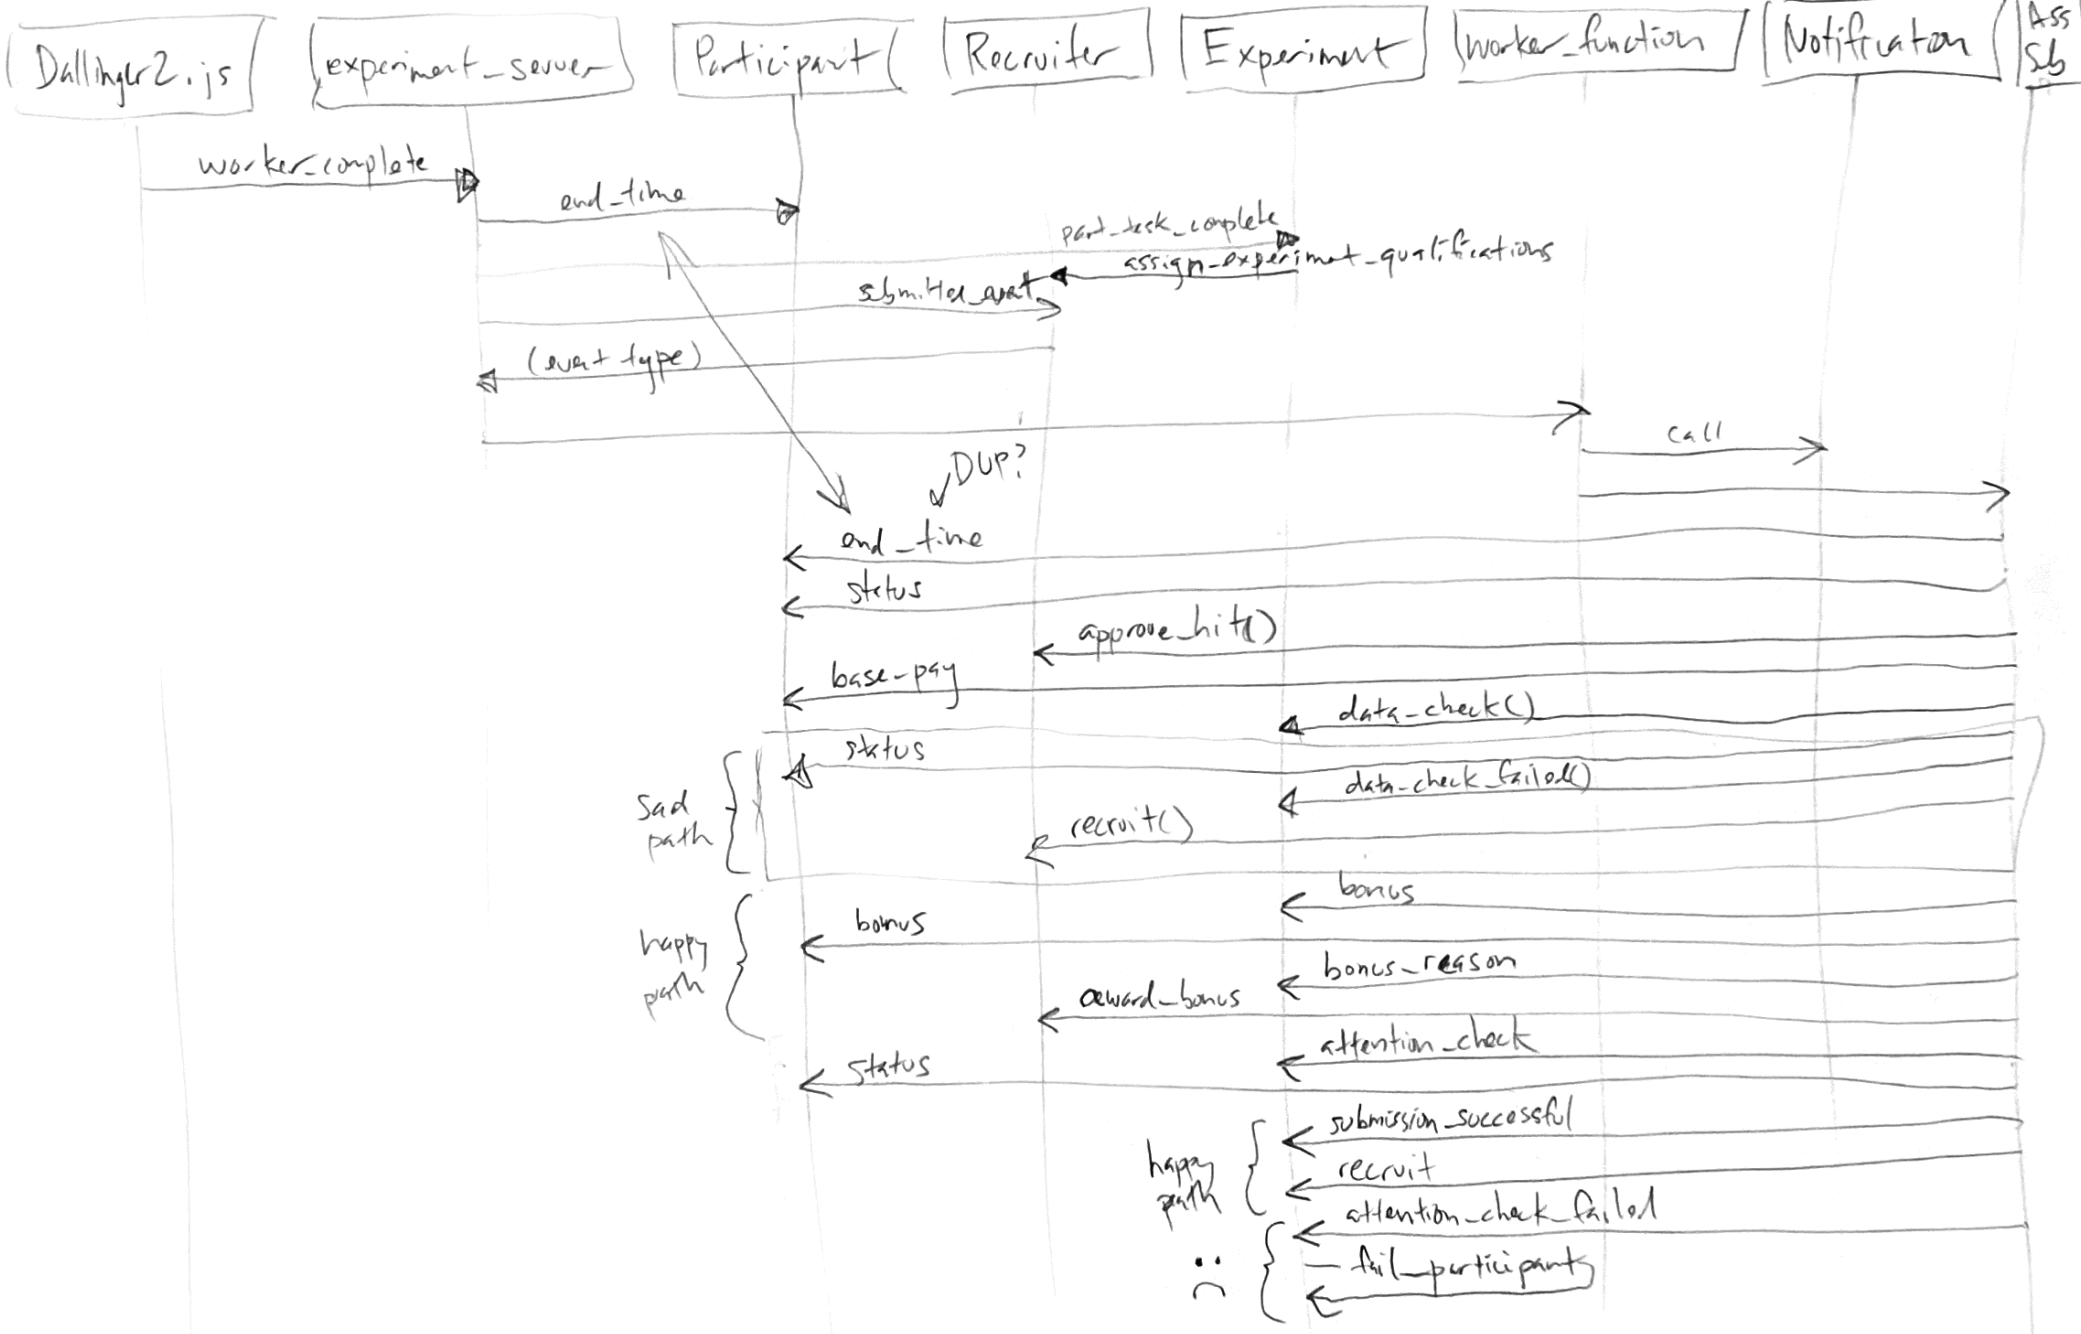 Dallinger2.js
experiment_server
Participant
Recruiter
Experiment
worker_function
Notification
Ass
Sub
worker_complete
end_time
part_task_complete
assign_experiment_qualifications
submitted_event
(event type)
call
DUP?
end_time
status
approve_hit()
base_pay
data_check()
status
data_check_failed()
sad
path
recruit()
bonus
bonus
happy
path
bonus_reason
award_bonus
attention_check
status
submission_successful
happy
path
recruit
attention_check_failed
fail_participants